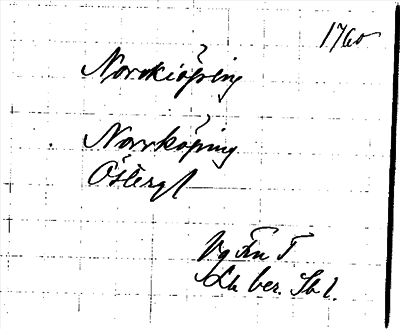 1760
Norrkiöping
Norrköping
Östergl
Vg Fru T
Lb ber. Sb 1.